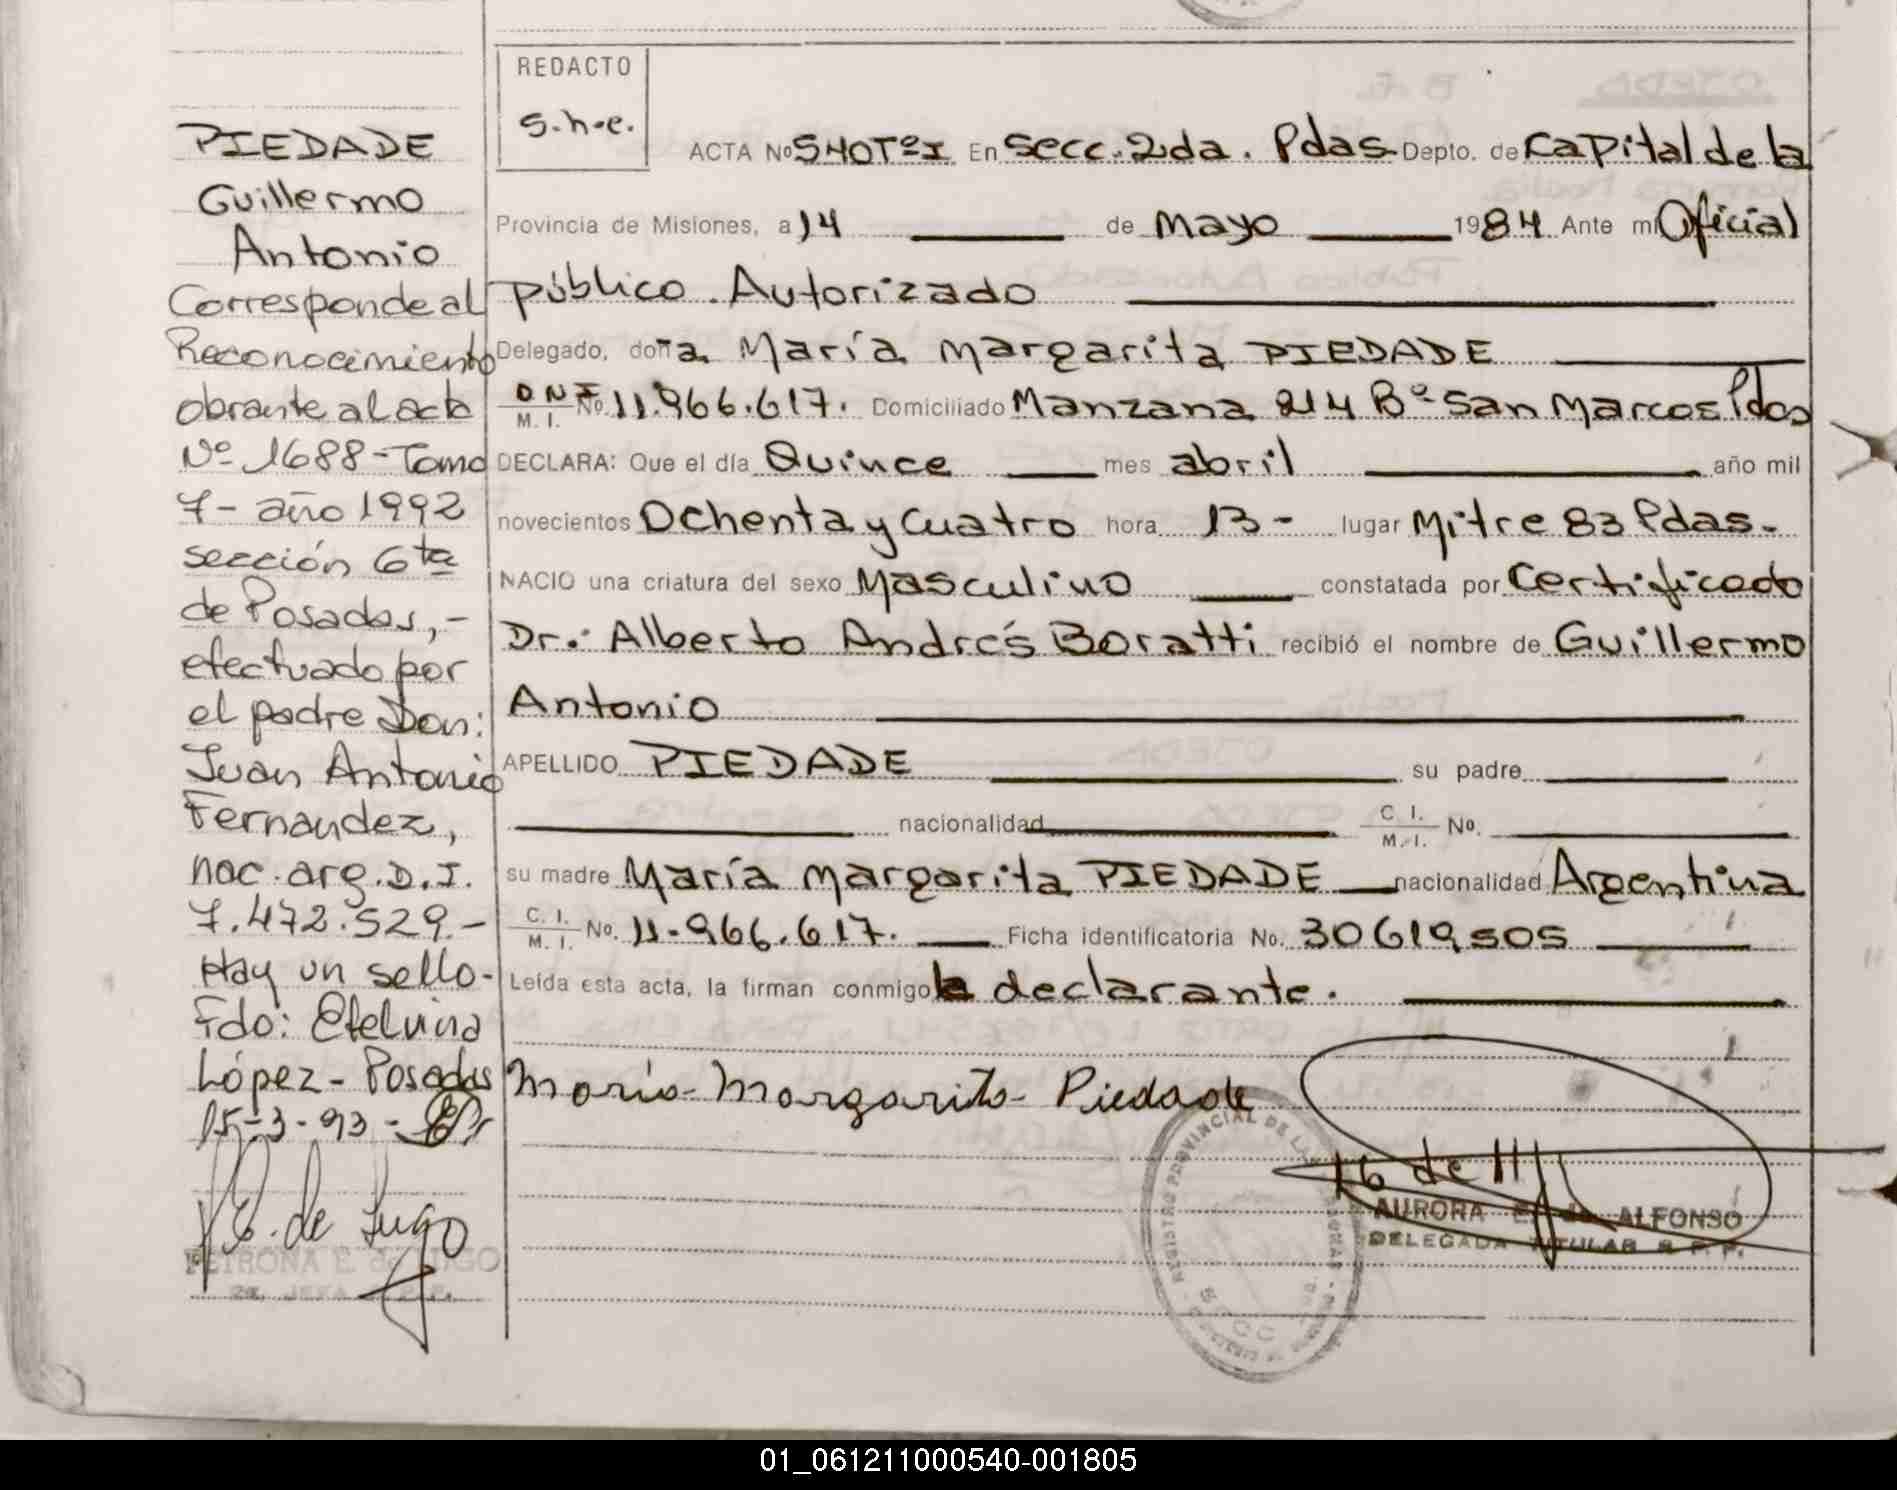 PIEDADE
Guillermo
Antonio
Corresponde al
Reconocimiento
obrante al acta
Nº 1688-Tomo
7- año 1992
sección 6ta
de Posadas,-
efectuado por
el padre Don:
Juan Antonio
Fernandez,
nac. arg. D.I.
7.472.529.-
Hay un sello-
Fdo: Etelvina
López - Posadas
15-3-93-
P.E. de Lugo
PETRONA E. de LUGO
REDACTO
S.h.e.
ACTA Nº 540 Tº I En Secc. 2da. Pdas Depto. de Capital de la
Provincia de Misiones, a 14 de Mayo 1984 Ante mi Oficial
Público Autorizado
Delegado, doña María Margarita PIEDADE
DNI M. I. No. 11.966.617. Domiciliado Manzana 214 Bº San Marcos Pdas
DECLARA: Que el día Quince mes abril año mil
novecientos Ochenta y Cuatro hora 13- lugar Mitre 83 Pdas-
NACIO una criatura del sexo Masculino constatada por Certificado
Dr.: Alberto Andrés Boratti recibió el nombre de Guillermo
Antonio
APELLIDO PIEDADE su padre
nacionalidad C. I. M. I. No.
su madre María Margarita PIEDADE nacionalidad Argentina
C. I. M. I. No. 11.966.617. Ficha identificatoria No. 30619505
Leída esta acta, la firman conmigo la declarante.
María Margarita Piedade
AURORA ALFONSO
DELEGADA TITULAR R. P. P.
REGISTRO PROVINCIAL DE LAS PERSONAS
01_061211000540-001805